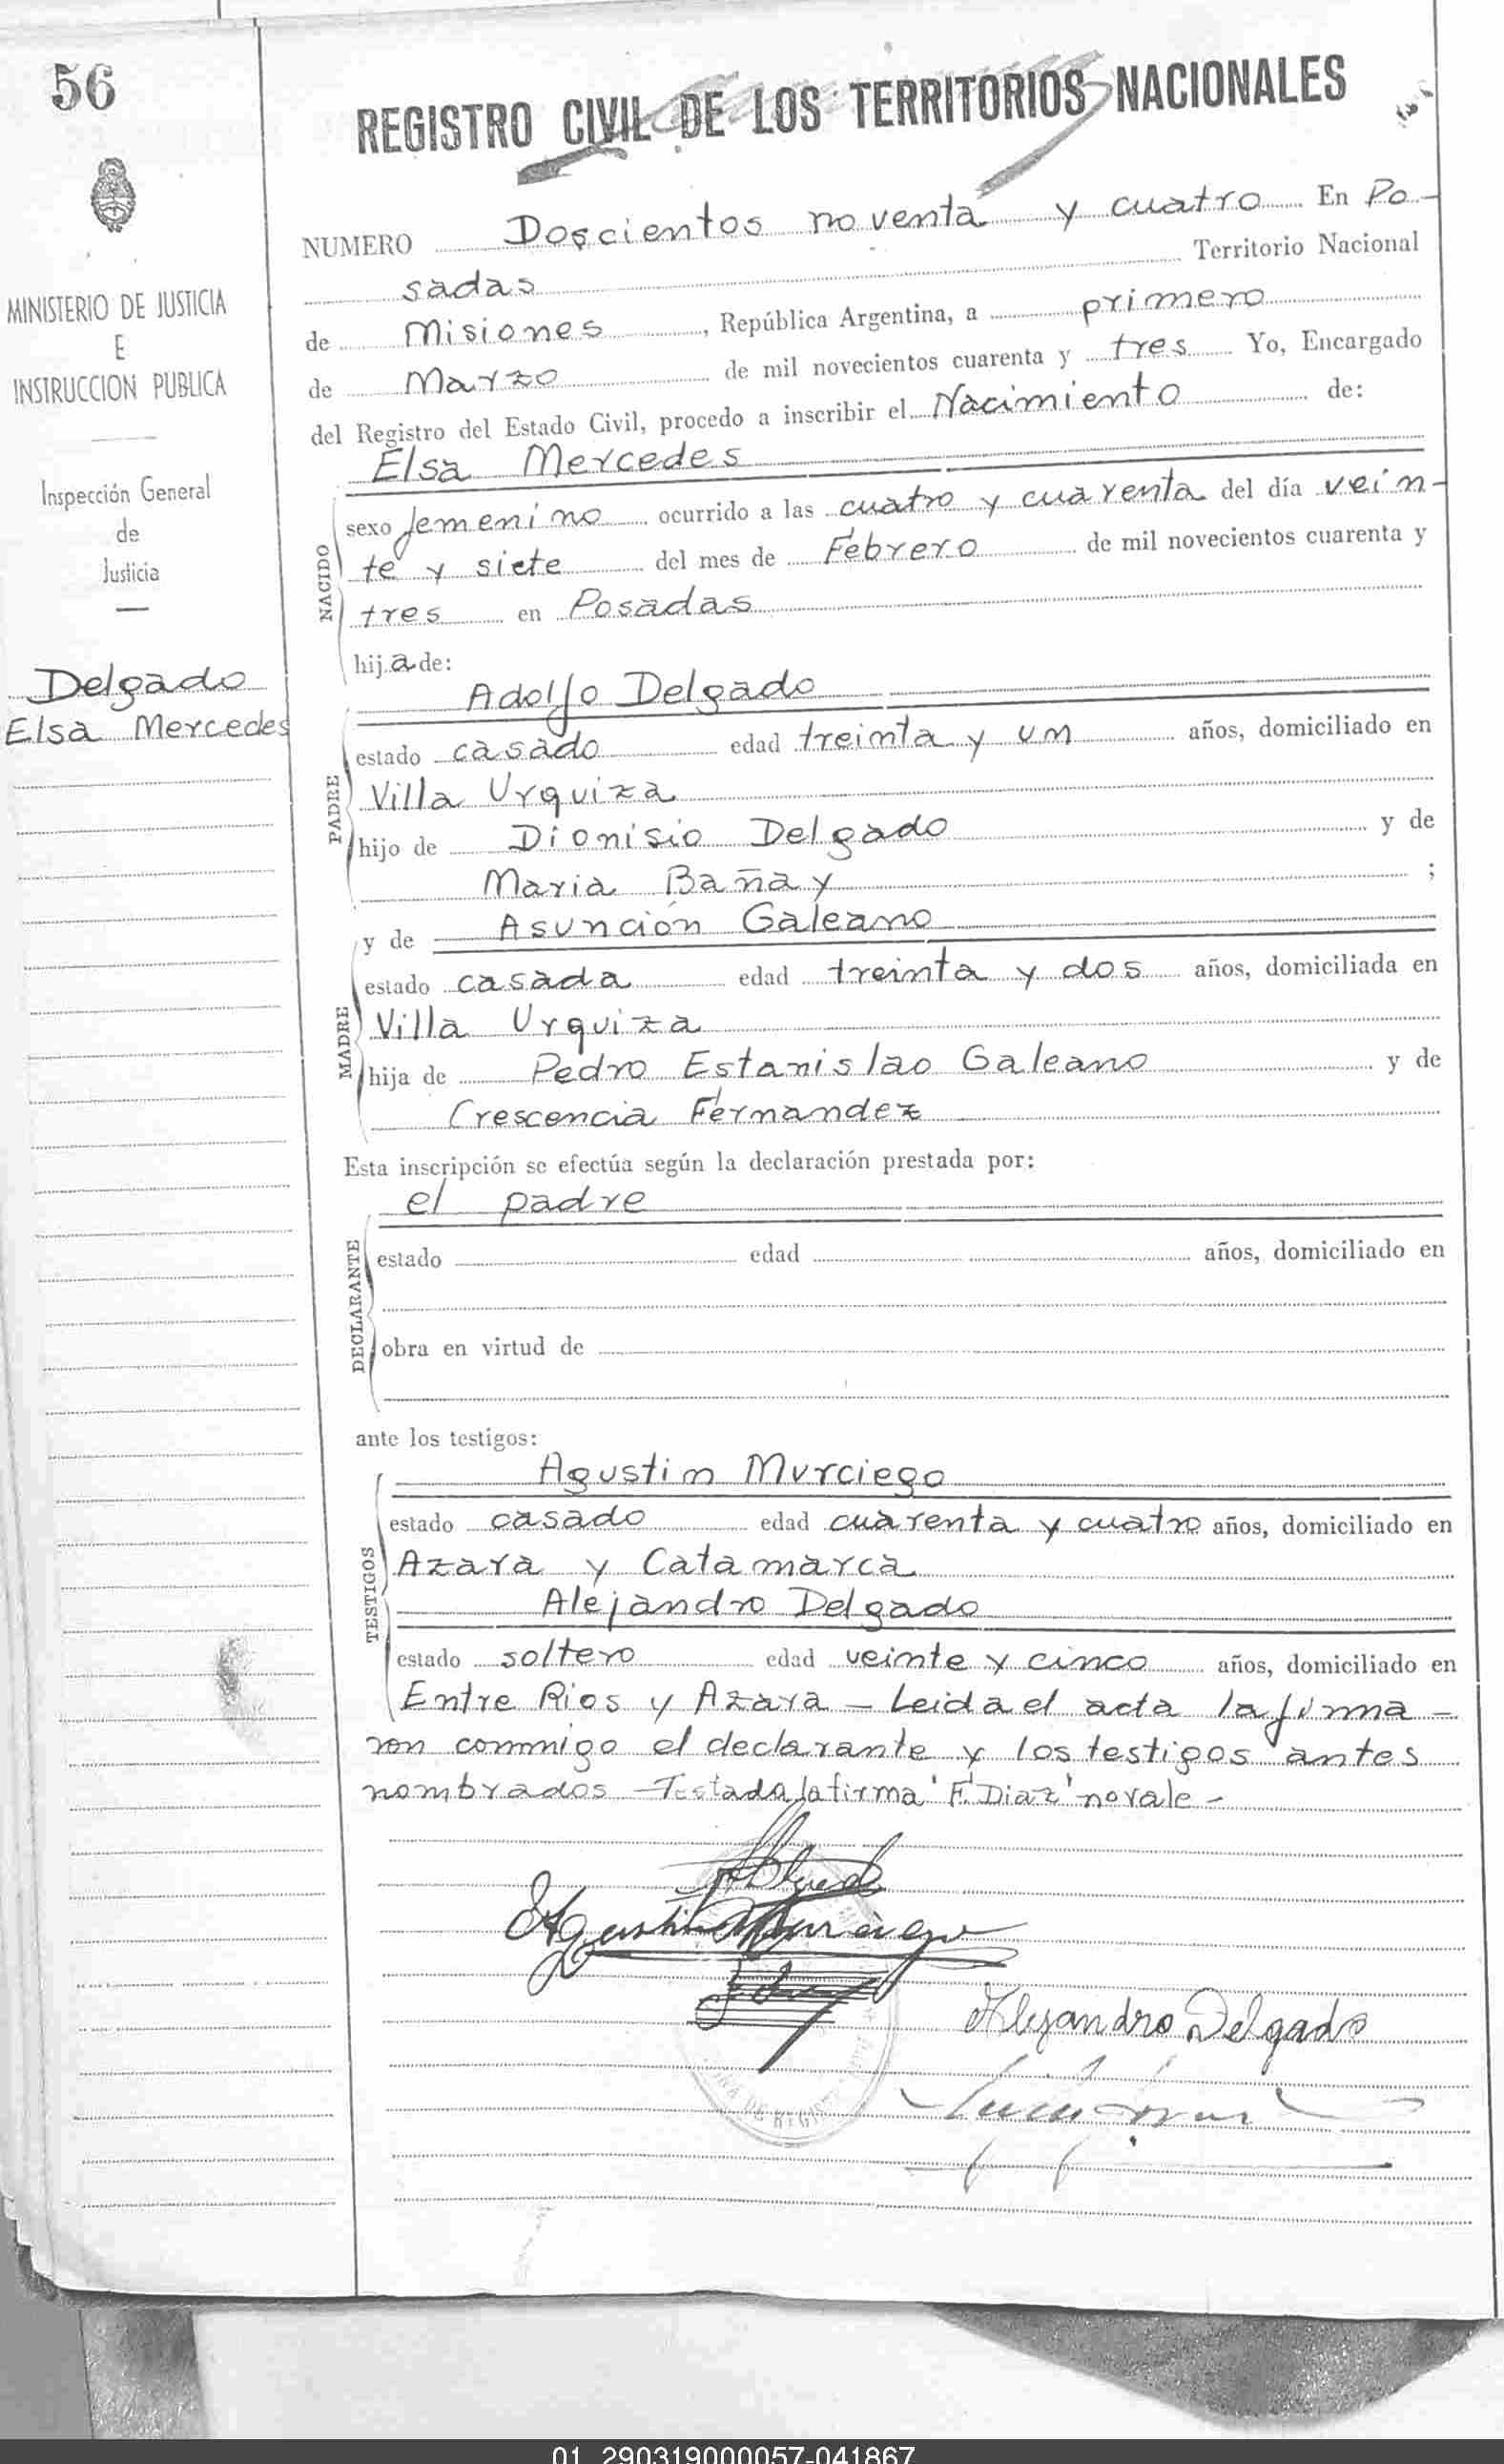 56
REGISTRO CIVIL DE LOS TERRITORIOS NACIONALES
MINISTERIO DE JUSTICIA
E
INSTRUCCION PUBLICA
Inspección General
de
Justicia
Delgado
Elsa Mercedes
NUMERO Doscientos noventa y cuatro En Po-
sadas Territorio Nacional
de Misiones, República Argentina, a primero
de Marzo de mil novecientos cuarenta y tres Yo, Encargado
del Registro del Estado Civil, procedo a inscribir el Nacimiento de:
Elsa Mercedes
NACIDO
sexo femenino ocurrido a las cuatro y cuarenta del día vein-
te y siete del mes de Febrero de mil novecientos cuarenta y
tres en Posadas
hija de:
Adolfo Delgado
PADRE
estado casado edad treinta y un años, domiciliado en
Villa Urquiza
hijo de Dionisio Delgado y de
Maria Bañay ;
y de Asunción Galeano
MADRE
estado casada edad treinta y dos años, domiciliada en
Villa Urquiza
hija de Pedro Estanislao Galeano y de
Crescencia Fernandez
Esta inscripción se efectúa según la declaración prestada por:
el padre
DECLARANTE
estado edad años, domiciliado en
obra en virtud de
ante los testigos:
Agustin Murciego
TESTIGOS
estado casado edad cuarenta y cuatro años, domiciliado en
Azara y Catamarca
Alejandro Delgado
estado soltero edad veinte y cinco años, domiciliado en
Entre Rios y Azara - Leida el acta la firma-
ron conmigo el declarante y los testigos antes
nombrados - Testada la firma "F. Diaz" no vale -
Agustin Murciego
Alejandro Delgado
01_290319000057-041867